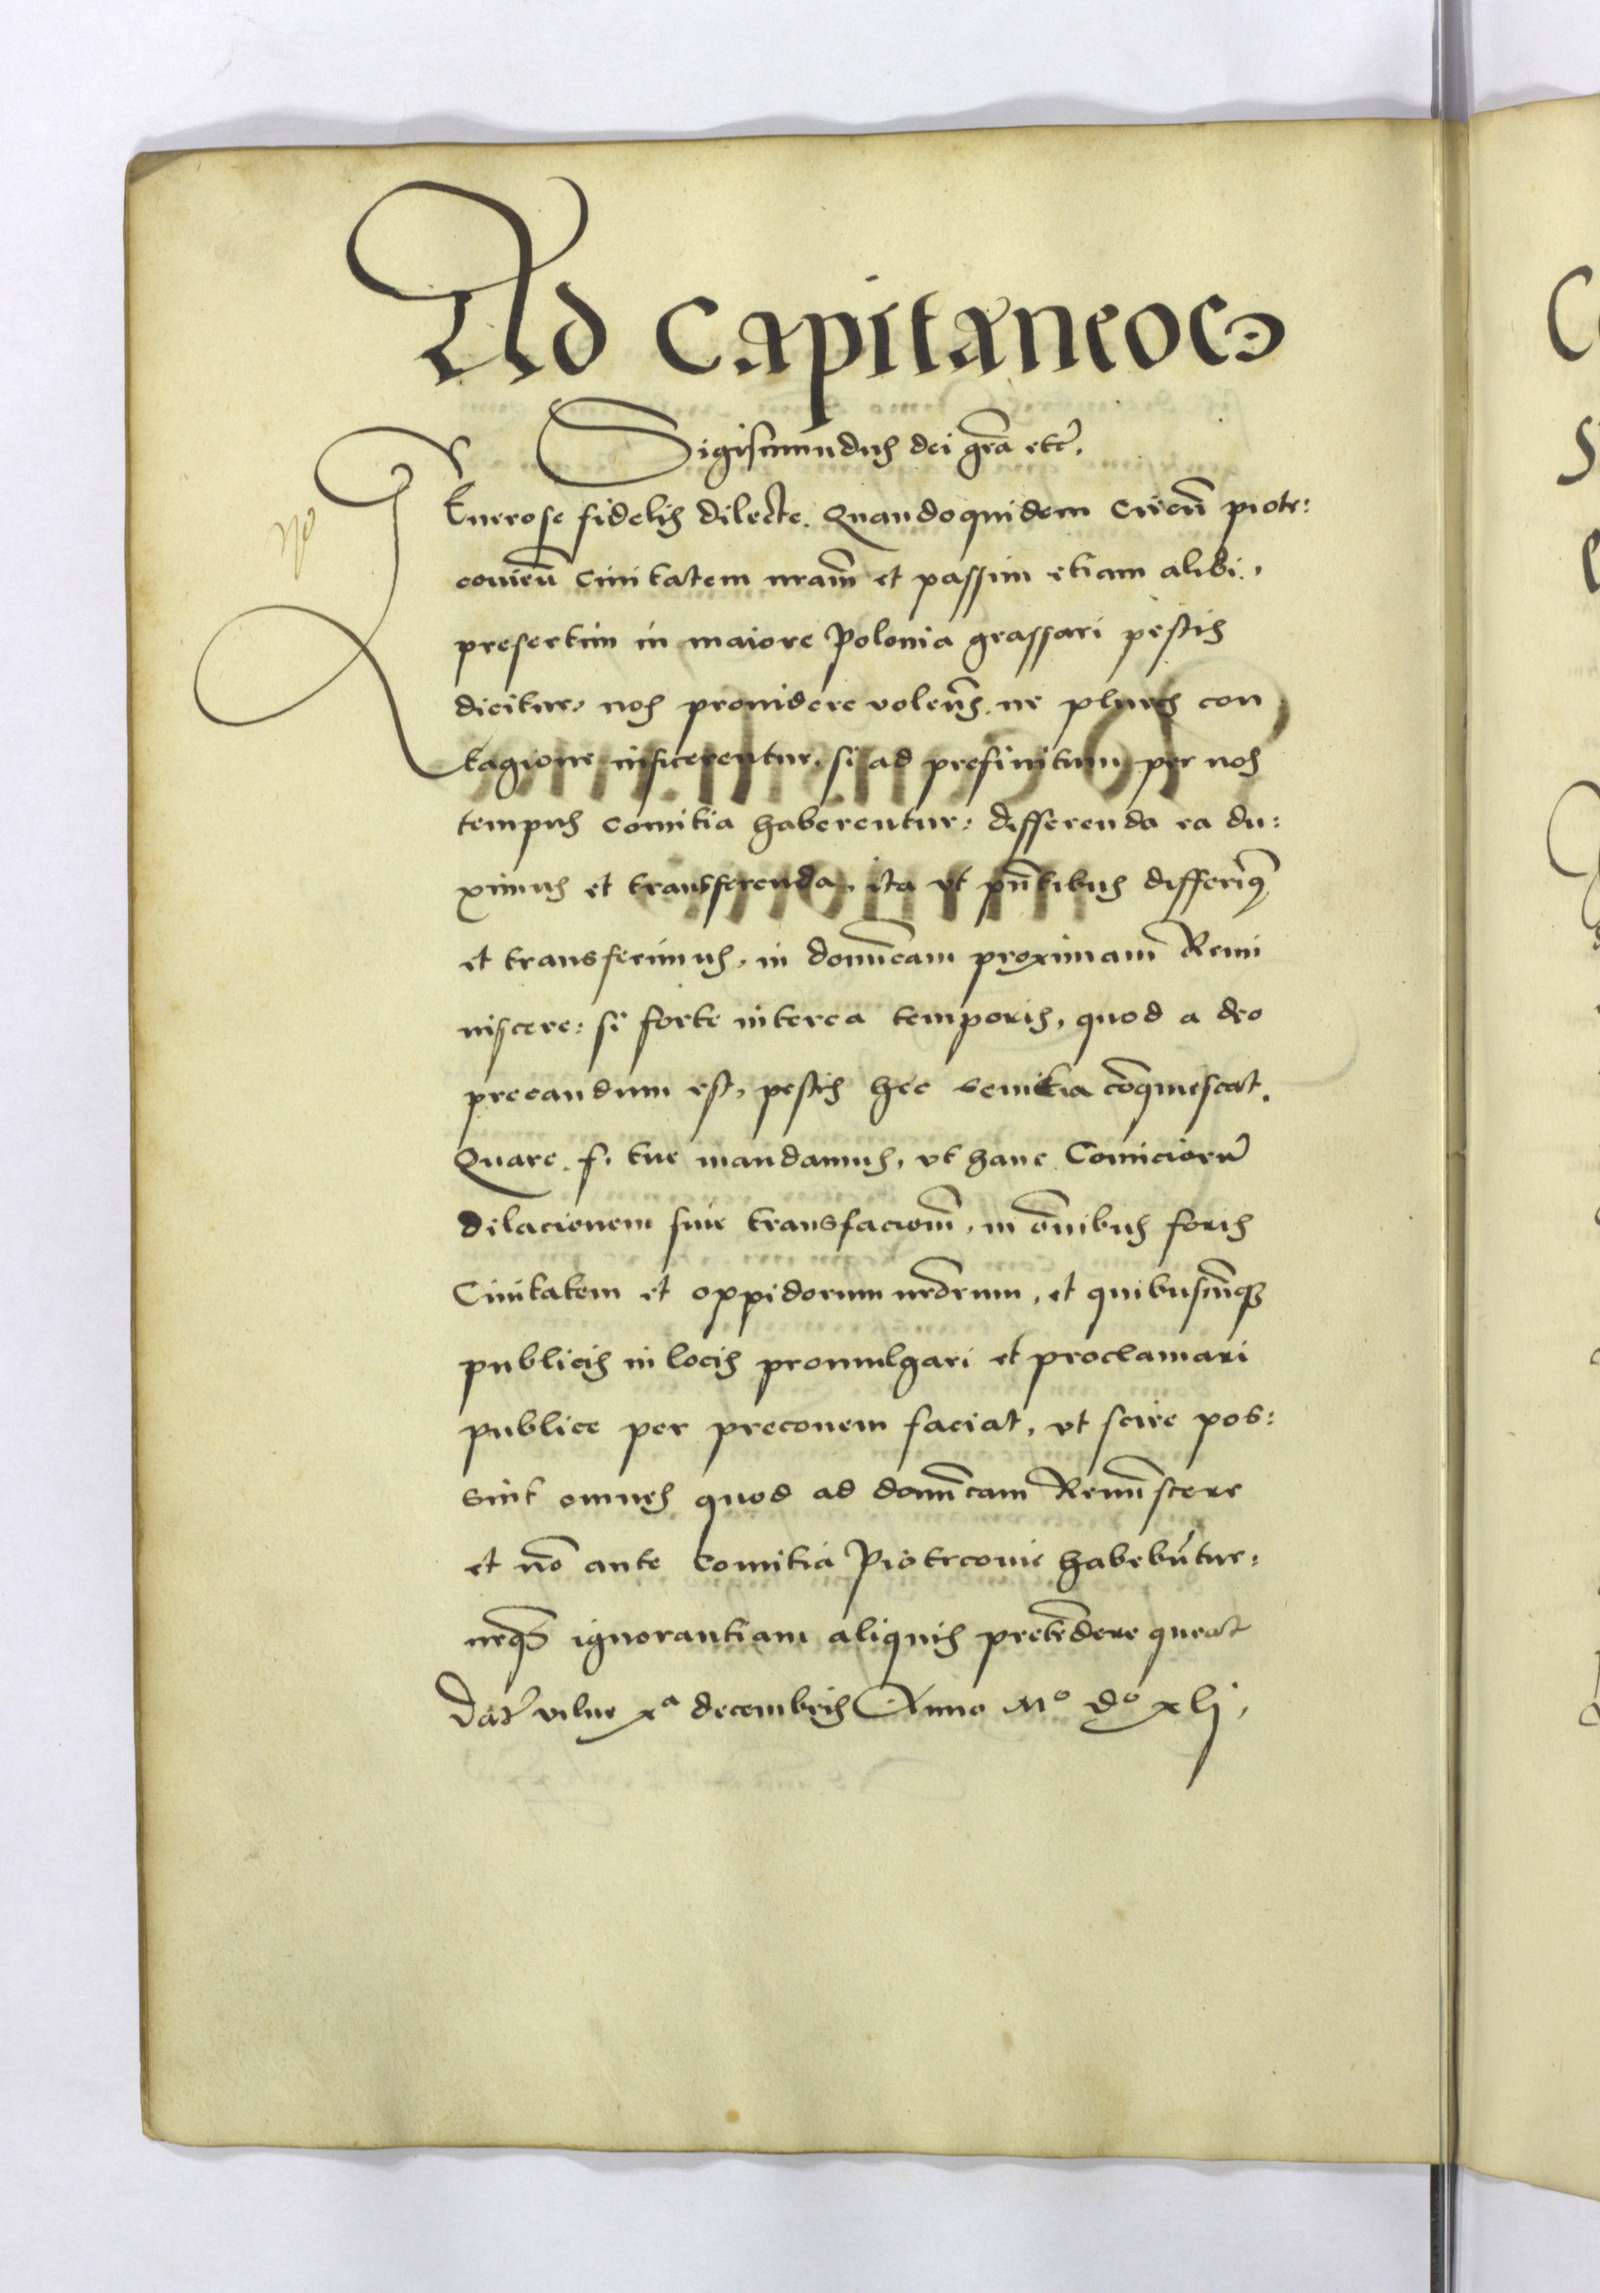 Ad Capitaneos
Sigismundus dei gr̄a etc̄.
No
Generose fidelis dilecte. Quandoquidem circū piotr:
couieñ Ciuitatem nr̄am et passim etiam alibi,
presertim in maiore Polonia grassari pestis
dicitur, nos prouidere volen̄s, ne plures con
tagione inficerentur, si ad prefinitum per nos
tempus Comitia haberentur: differenda ea du:
ximus et transferenda, ita vt pn̄tibus differimq
et transferimus, in domīcam proximam Remi
niscere: si forte interea temporis, quod a deo
precandum est, pestis hec seuitia cōquiescat.
Quare f. tue mandamus, vt hanc Comiciorū
dilacionem siue translacionē, in om̄ibus foris
Ciuitatem et oppidorum nr̄orum, et quibuscūqȝ
publicis in locis promulgari et proclamari
publice per preconem faciat, vt scire pos:
sint omnes quod ad domīcam Reminiscere
et nō ante Comitia Piotrcouie habebūtur:
neqȝ ignorantiam aliquis pretēdere queat
Dat̄ vilne xᵃ decembris Anno Mº Dº xlj,